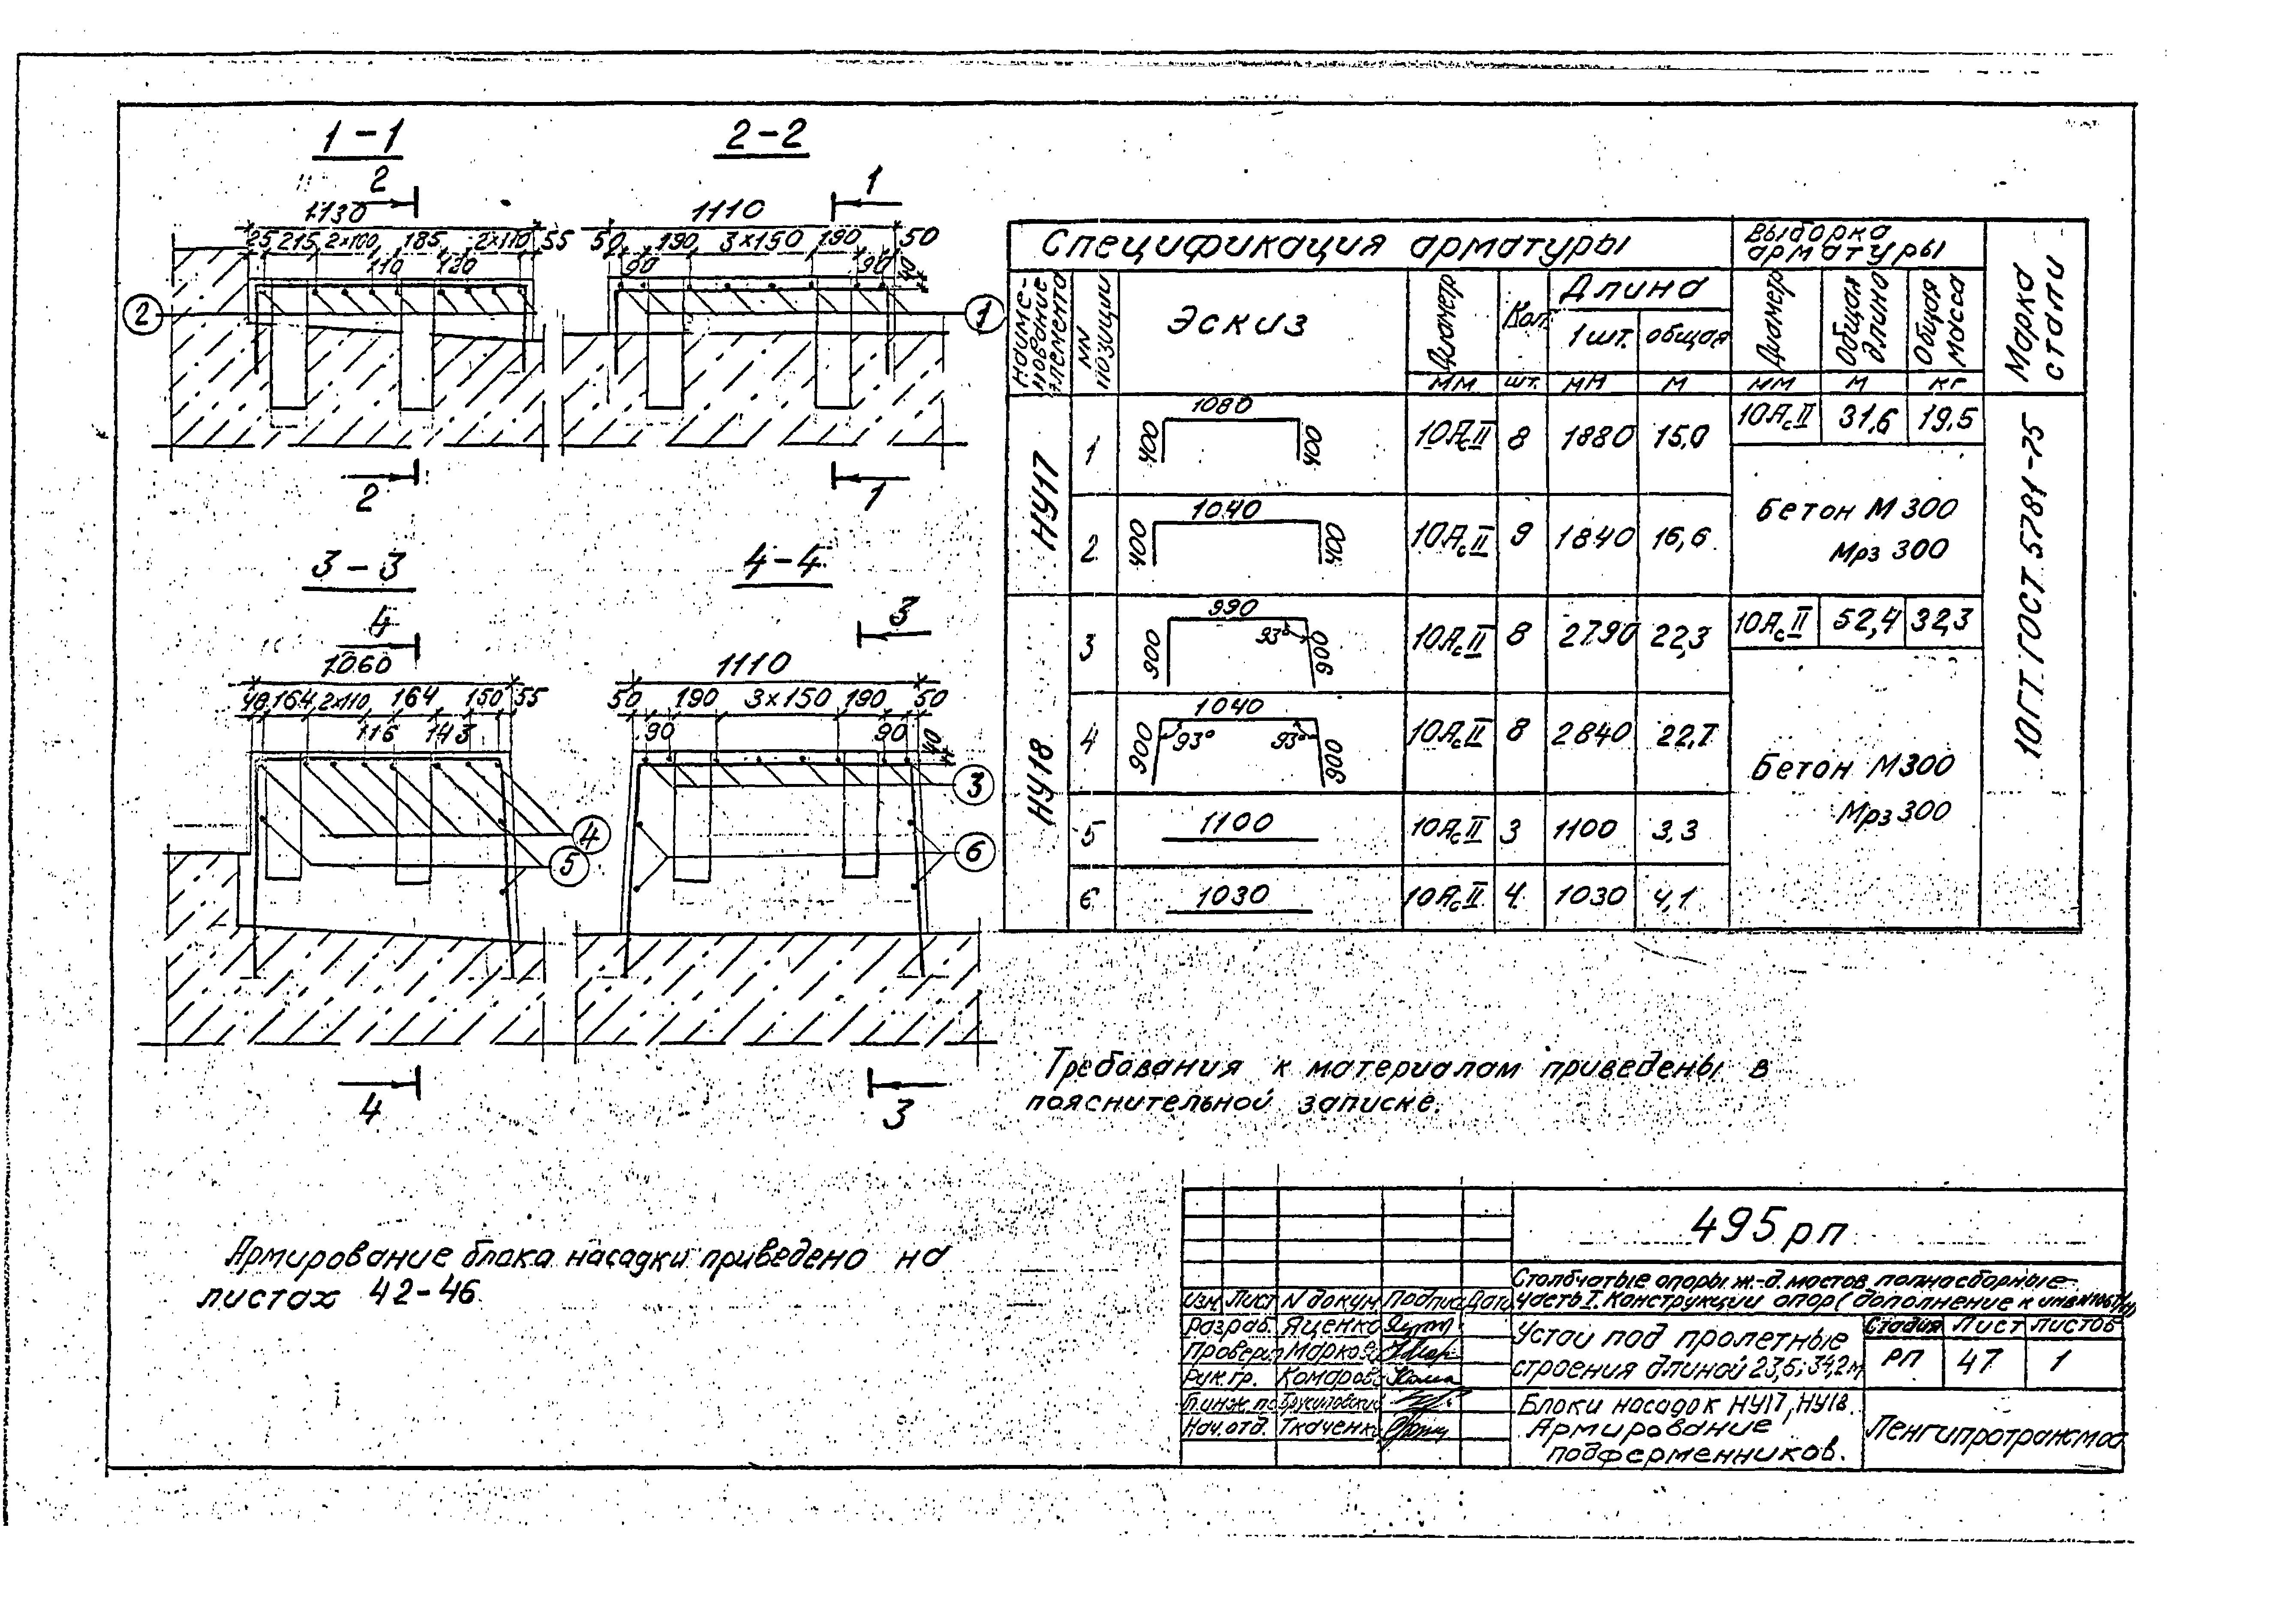 1-1
2
1130
25 215 2×100 185 2×110 55
110 120
2
2
2-2
1
1110
50 190 3×150 190 50
90 90 40
1
1
3-3
4
1060
48 164 2×110 164 150 55
116 143
4
5
4
4-4
3
1110
50 190 3×150 190 50
90 90 40
3
6
3
Спецификация арматуры
Выборка арматуры
Марка стали
Наименование элемента
NN позиции
Эскиз
Диаметр
Кол.
Длина
1 шт. общая
Диаметр
Общая длина
Общая масса
мм шт. мм м мм м кг
НУ17
1 400 1080 400 10АсII 8 1880 15,0
10АсII 31,6 19,5
2 400 1040 400 10АсII 9 1840 16,6
Бетон М300
Мрз 300
НУ18
3 900 990 93° 900 10АсII 8 2790 22,3
10АсII 52,4 32,3
4 900 1040 93° 93° 900 10АсII 8 2840 22,7
5 1100 10АсII 3 1100 3,3
6 1030 10АсII 4 1030 4,1
Бетон М300
Мрз 300
10ГТ. ГОСТ 5781-75
Требования к материалам приведены в
пояснительной записке.
Армирование блока насадки приведено на
листах 42-46
495рп
Столбчатые опоры ж.-д. мостов полносборные
часть I. Конструкции опор (дополнение к инв
Изм. Лист N докум Подпис Дата
Разраб. Яценко
Провери Маркови
Рук.гр. Комарова
Нач.отд. Ткаченко
Устои под пролетные
строения длиной 23,6; 34,2м
Стадия Лист Листов
РП 47 1
Блоки насадок НУ17, НУ18.
Армирование
подферменников.
Ленгипротрансмос